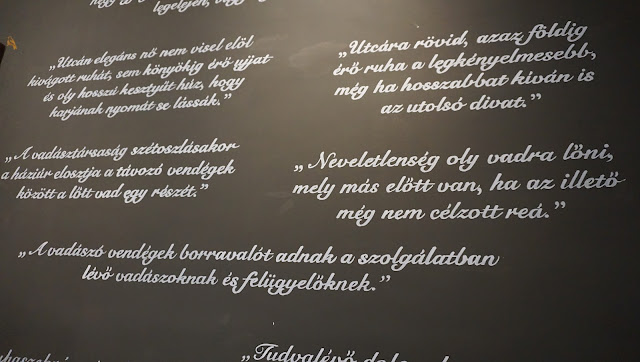 legelején, vagy
„Utcán elegáns nő nem visel elöl
kivágott ruhát, sem könyökig érő ujjat
és oly hosszú kesztyűt húz, hogy
karjának nyomát se lássák.”
„Utcára rövid, azaz földig
érő ruha a legkényelmesebb,
még ha hosszabbat kíván is
az utolsó divat.”
„A vadásztársaság szétoszlásakor
a háziúr elosztja a távozó vendégek
között a lőtt vad egy részét.”
„Neveletlenség oly vadra lőni,
mely más előtt van, ha az illető
még nem célzott reá.”
„A vadászó vendégek borravalót adnak a szolgálatban
lévő vadászoknak és felügyelőknek.”
„Tudvalévő